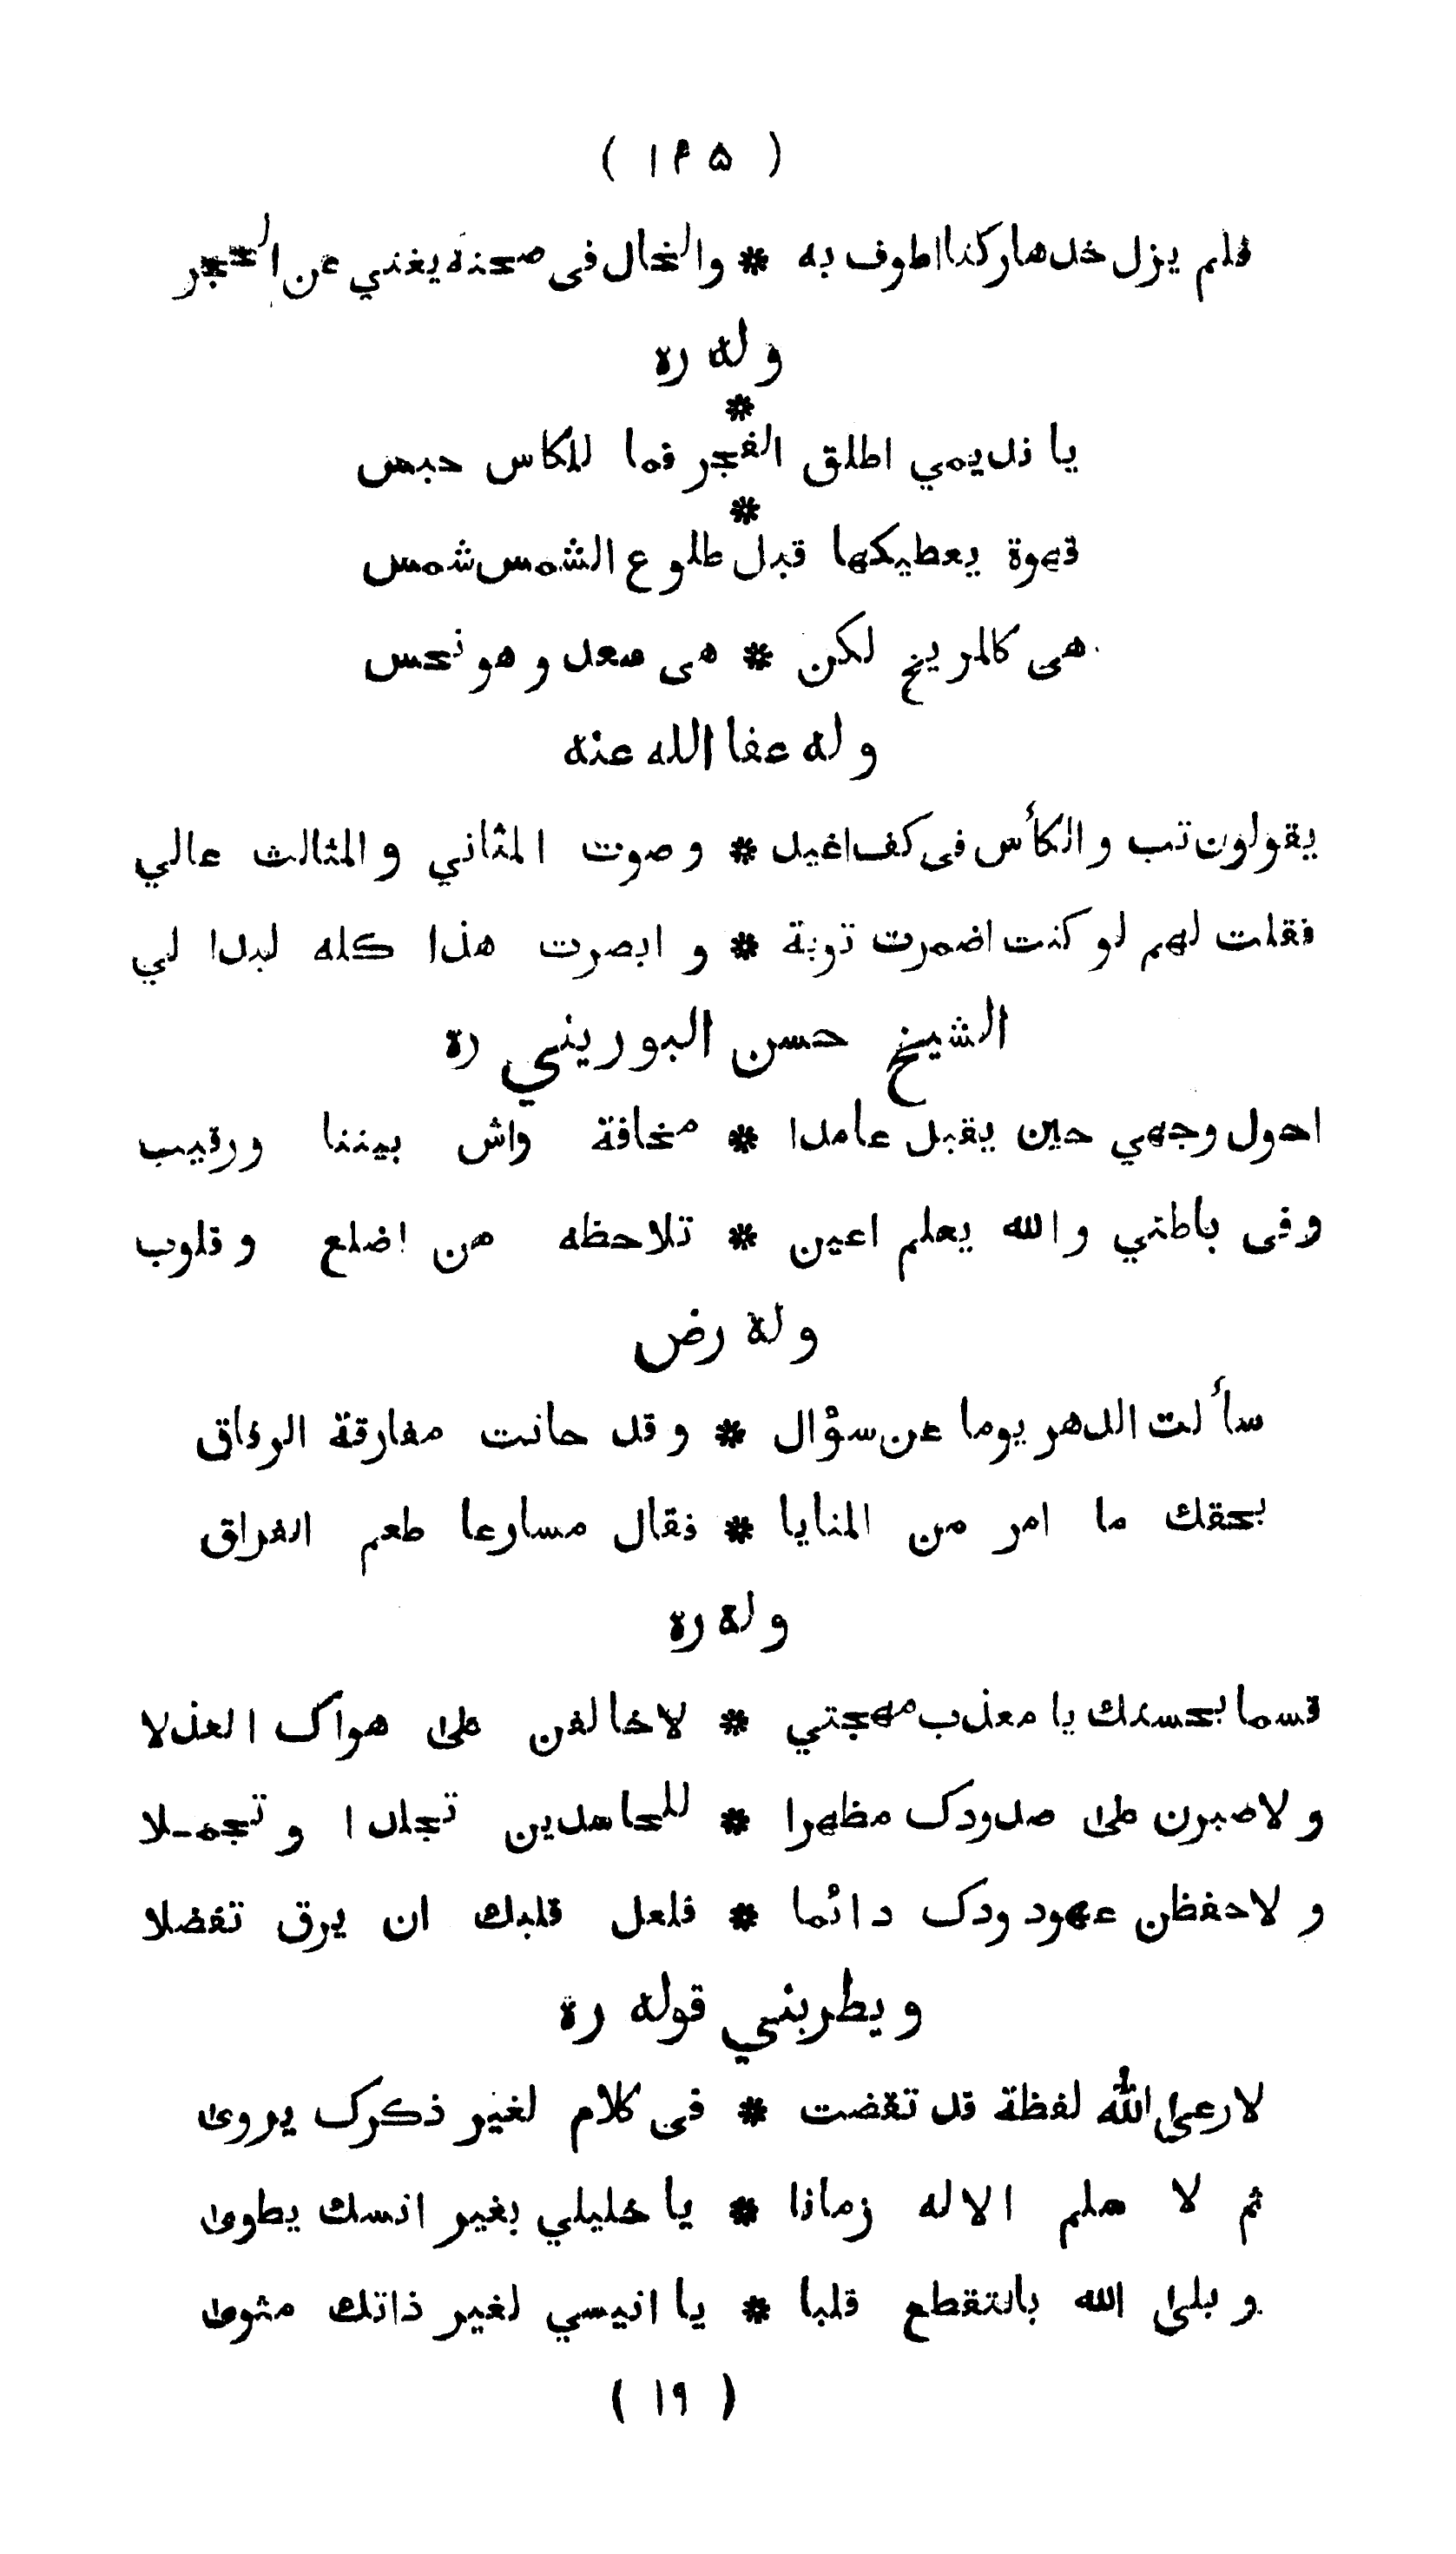 ( ۱۴۵ )
فلم يزل خدها ركنا اطوف به * والخال فى صحنه يغني عن الحجر
و له ره
يا نديمي اطلق الفجر * فما للكاس حبس
قهوة يعطيكها قبل * طلوع الشمس شمس
هى كالمريخ لكن * هى سعد و هو نحس
و له عفا الله عنه
يقولون تب و الكأس فى كف اغيد * و صوت المثاني و المثالث عالي
فقلت لهم لو كنت اضمرت توبة * و ابصرت هذا كله لبدا لي
الشيخ حسن البوريني ره
احول وجهي حين يقبل عامدا * مخافة واش بيننا ورقيب
وفى باطني والله يعلم اعين * تلاحظه من اضلع و قلوب
و له رض
سألت الدهر يوما عن سؤال * و قد حانت مفارقة الرفاق
بحقك ما امر من المنايا * فقال مسارعا طعم الفراق
و له ره
قسما بحسنك يا معذب مهجتي * لاخالفن على هواك العذلا
و لاصبرن على صدودك مظهرا * للحاسدين تجلدا و تجملا
و لاحفظن عهود ودك دائما * فلعل قلبك ان يرق تفضلا
و يطربني قوله ره
لا رعى الله لفظة قد تقضت * فى كلام لغير ذكرك يروى
ثم لا سلم الاله زمانا * يا خليلي بغير انسك يطوى
و بلى الله بالتقطع قلبا * يا انيسي لغير ذاتك مثوى
( ١٩ )